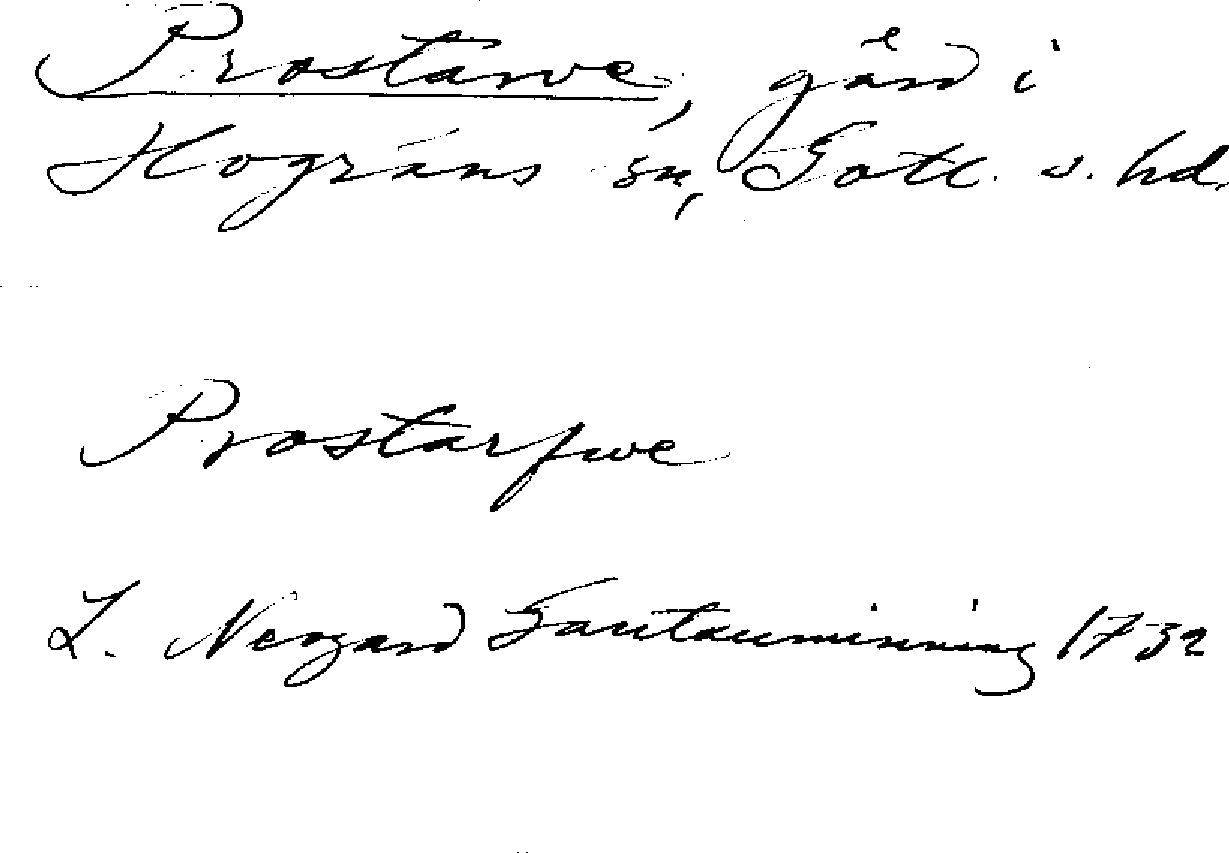 Prostarve, gård i
Hogräns sn, Gotl. s. hd.
Prostarfwe
L. Neogard Gautauminning 1732